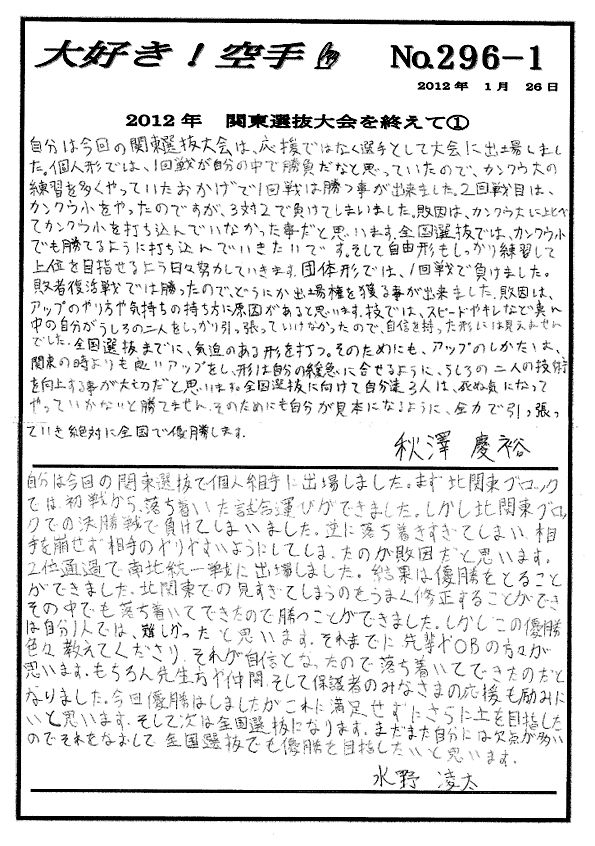 大好き！空手 No.296-1
2012年 1月 26日
2012年 関東選抜大会を終えて①
自分は今回の関東選抜大会は、応援ではなく選手として大会に出場しまし
た。個人形では、1回戦が自分の中で勝負だなと思っていたので、カンクウ大の
練習を多くやっていたおかげで1回戦は勝つ事が出来ました。2回戦目は、
カンクウ小をやったのですが、3対2で負けてしまいました。敗因は、カンクウ大に比べ
てカンクウ小を打ち込んでいなかった事だと思います。全国選抜では、カンクウ小
でも勝てるように打ち込んでいきたいです。そして自由形もしっかり練習して
上位を目指せるよう日々努力していきます。団体形では、1回戦で負けました。
敗者復活戦では勝ったので、どうにか出場権を獲る事が出来ました。敗因は、
アップのやり方や気持ちの持ち方に原因があると思います。技では、スピードやキレなど真ん
中の自分がうしろの二人をしっかり引っ張っていけなかったので、自信を持った形には見えません
でした。全国選抜までに、気迫のある形を打つ。そのためにも、アップのしかたいは、
関東の時よりも良いアップをし、形は自分の緩急に合せるように、うしろの二人の技術
を向上する事が大切だと思います。全国選抜に向けて自分達3人は、死ぬ気になって
やっていかないと勝てません。そのためにも自分が見本になるように、全力で引っ張っ
ていき絶対に全国で優勝します。
秋澤 慶裕
自分は今回の関東選抜で個人組手に出場しました。まず北関東ブロック
では、初戦から、落ち着いた試合運びができました。しかし北関東ブロッ
クでの決勝戦で負けてしまいました。逆に落ち着きすぎてしまい、相
手を崩せず相手のやりやすいようにしてしまったのが敗因だと思います。
2位通過で南北統一戦に出場しました。結果は優勝をとること
ができました。北関東での見すぎてしまうのをうまく修正することができ
その中でも落ち着いてできたので勝つことができました。しかしこの優勝
は自分1人では、難しかったと思います。それまでに先輩やOBの方々が
色々教えてくださり、それが自信となったので落ち着いてできたのだと
思います。もちろん先生方や仲間、そして保護者のみなさまの応援も励みに
なりました。今回優勝はしましたがこれに満足せずにさらに上を目指した
いと思います。そして次は全国選抜になります。まだまだ自分には欠点が多い
のでそれをなおして全国選抜でも優勝を目指したいと思います。
水野 凌太